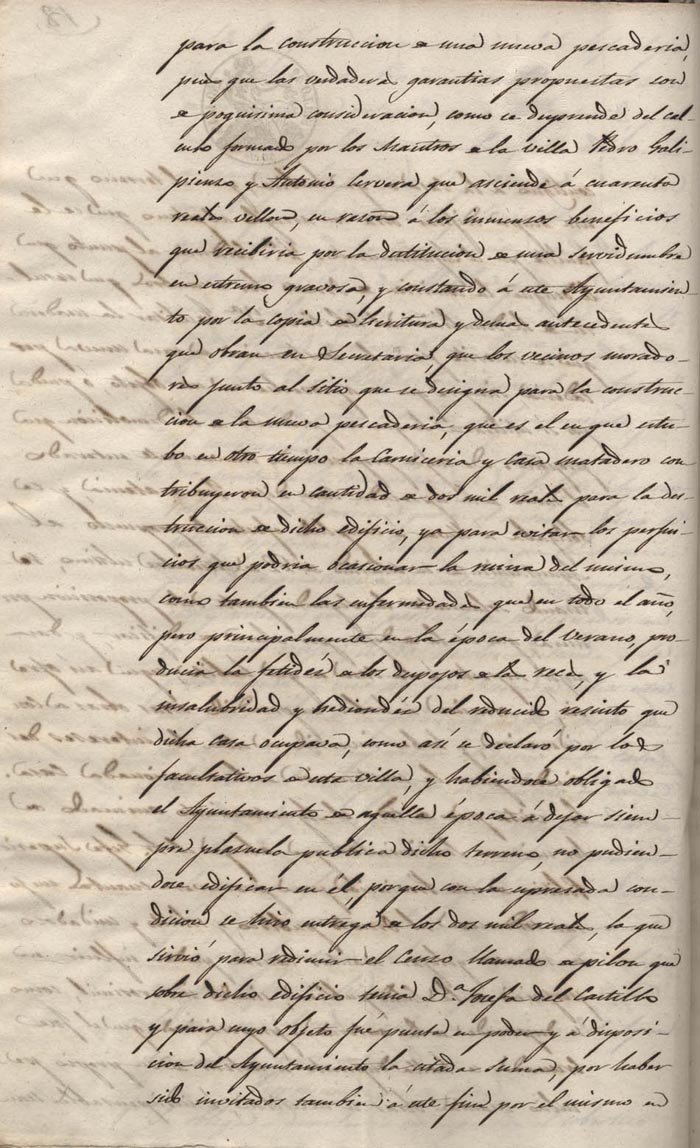 para la construccion de una nueva pescaderia,
pues que las verdaderas garantias propuestas son
de poquisima consideracion, como se desprende del cal-
culo formado por los Maestros de la villa Pedro Gali-
pienzo y Antonio Cervera que asciende á cuarenta
reales vellon, en razon á los inmensos beneficios
que recibiria por la destitucion de una servidumbre
en estremo gravosa, y constando á este Ayuntamien-
to por la copia de Escritura y demas antecedentes
que obran en Secretaria, que los vecinos morado-
res junto al sitio que se designa para la construc-
cion de la nueva pescaderia, que es el en que estu-
bo en otro tiempo la Carniceria y Casa matadero con
tribuyeron en cantidad de dos mil reales para la des-
truccion de dicho edificio, ya para evitar los perjui-
cios que podria ocasionar la ruina del mismo,
como tambien las enfermedades que en todo el año,
pero principalmente en la época del verano, pro-
ducia la fetidéz de los despojos de las reces, y la
insalubridad y hediondéz del reducido resinto que
dicha casa ocupava, como así se declaró por los
facultativos de esta villa, y habiendose obligado
el Ayuntamiento de aquella época á dejar siem-
pre plasuela publica dicho terreno, no pudien-
dose edificar en él, porque con la espresada con-
dicion se hizo entrega de los dos mil reales, la que
sirvió para redimir el Censo llamado de pilon que
sobre dicho edificio tenia D.ª Josefa del Castillo
y para cuyo objeto fué puesta en poder y á disposi-
cion del Ayuntamiento la citada suma, por haber
sido invitados tambien á este fin por el mismo en